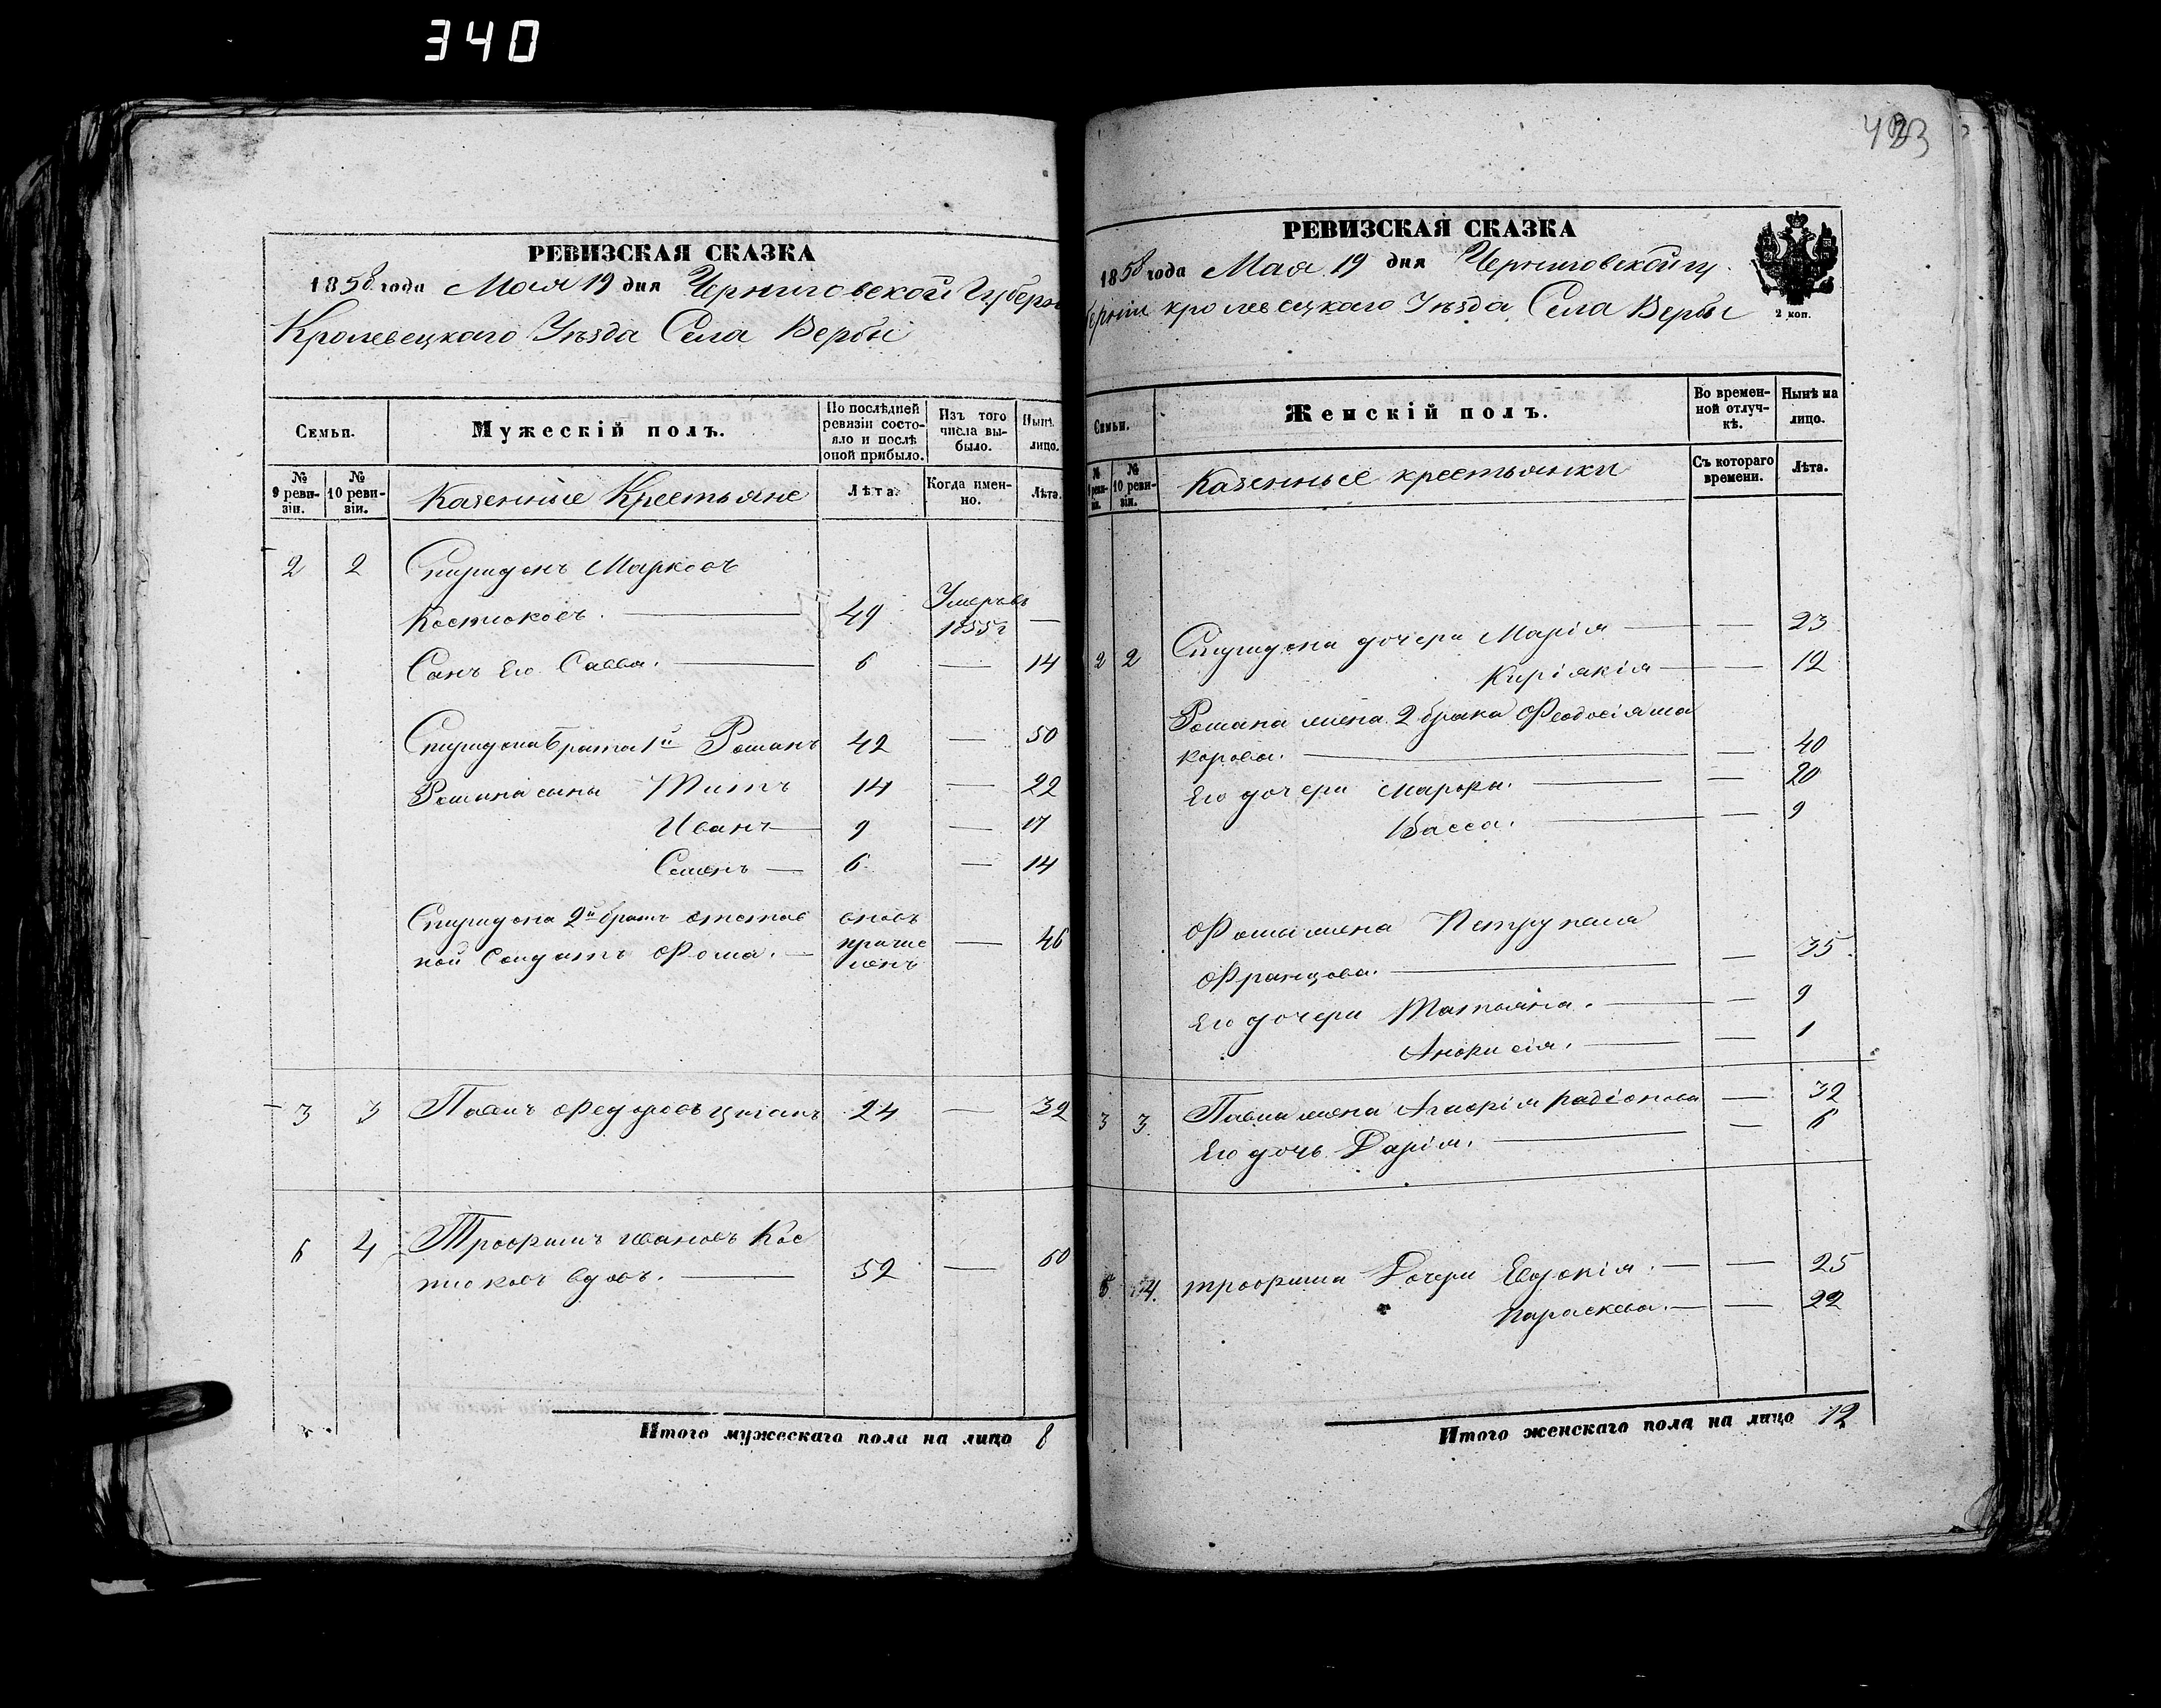 340
423
РЕВИЗСКАЯ СКАЗКА
1858 года Мая 19 дня Черниговской Губерн
Кролевецкаго Уѣзда Села Вербы
Семьи.
Мужескій полъ.
По послѣдней ревизіи состояло и послѣ оной прибыло.
Изъ того числа выбыло.
Нынѣ лицо.
№ 9 ревизіи.
№ 10 ревизіи.
Казенные Крестьяне
Лѣта.
Когда именно.
Лѣта.
2 2 Спиридонъ Марковъ
Костюковъ. 49 Умеръ въ 1855 г —
Сынъ Его Савва. 6 — 14
Спиридона брата 1й Романъ 42 — 50
Романа сыны Титъ 14 — 22
Иванъ 9 — 17
Семенъ 6 — 14
Спиридона 2й братъ отстав вновь
ной Солдатъ Фома. причис ленъ — 46
3 3 Павелъ Федоровъ 24 — 32
6 4 Трофимъ Ивановъ Кос
тюковъ вдовъ. 52 — 60
Итого мужескаго пола на лицо 8
РЕВИЗСКАЯ СКАЗКА
1858 года Мая 19 дня Черниговской гу
берніи кролевецкаго Уѣзда Села Вербы
2 коп.
Семьи.
Женскій полъ.
Во временной отлучкѣ.
Нынѣ на лицо.
№ 9 ревизіи.
№ 10 ревизіи.
Казенные крестьянки
Съ котораго времени.
Лѣта.
2 2 Спиридона дочери Марія — 23
Киріякія — 12
Романа жена 2 брака Феодосія ма
карова. — 40
Его дочери Марфа. — 20
Васса. — 9
Фомы жена
Францова. — 35
Его дочери Татьяна. — 9
Анфисія. — 1
3 3. Павла жена Агафія радіонова — 32
Его дочь Дарія. — 6
6 4. трофима Дочери Евдокія. — 25
параскева. — 22
Итого женскаго пола на лицо 12